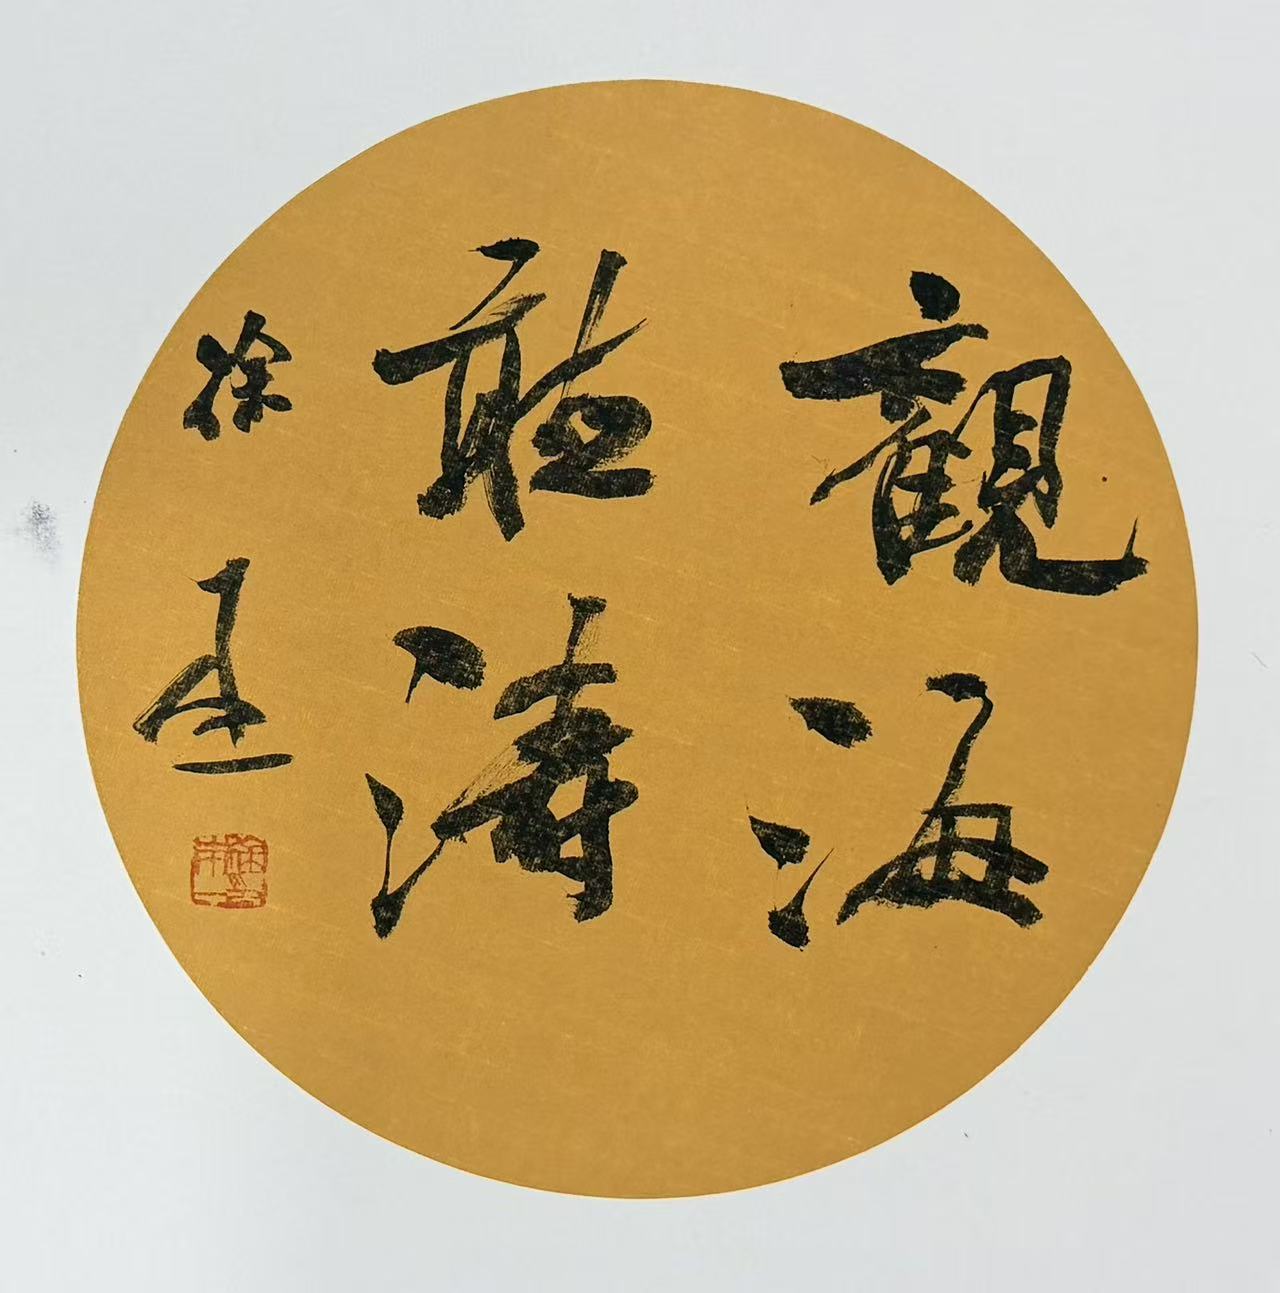 觀海
聽濤
徐